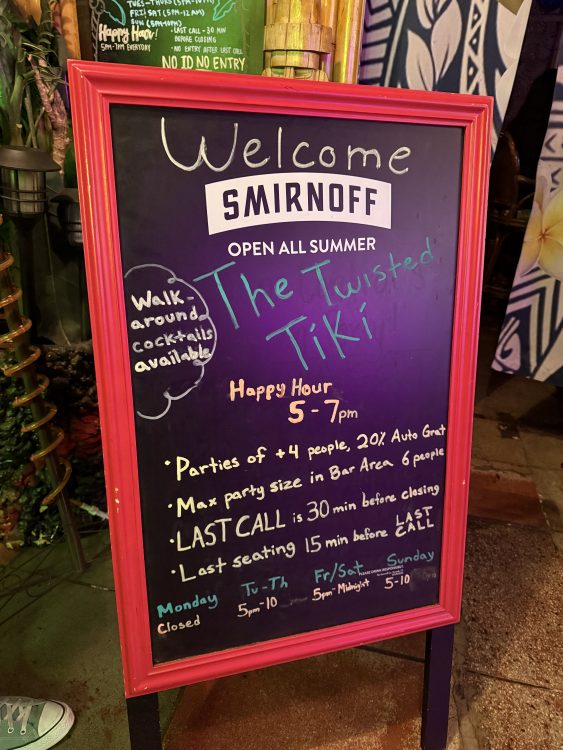 TUES-THURS (5PM-10PM)
FRI SAT (5PM-12AM)
SUN (5PM-10PM)
Happy Hour!
5PM-7PM EVERYDAY
-LAST CALL - 30 MIN
BEFORE CLOSING
- NO ENTRY AFTER LAST CALL
NO ID NO ENTRY
Welcome
SMIRNOFF
OPEN ALL SUMMER
The Twisted
Tiki
Walk-
around
cocktails
available
Happy Hour
5-7pm
•Parties of +4 people, 20% Auto Grat
•Max party size in Bar Area 6 people
•LAST CALL is 30 min before closing
•Last seating 15 min before LAST
CALL
Monday
Closed
Tu-Th
5pm-10
Fr/Sat
5pm-Midnight
Sunday
PLEASE DRINK RESPONSIBLY
5-10